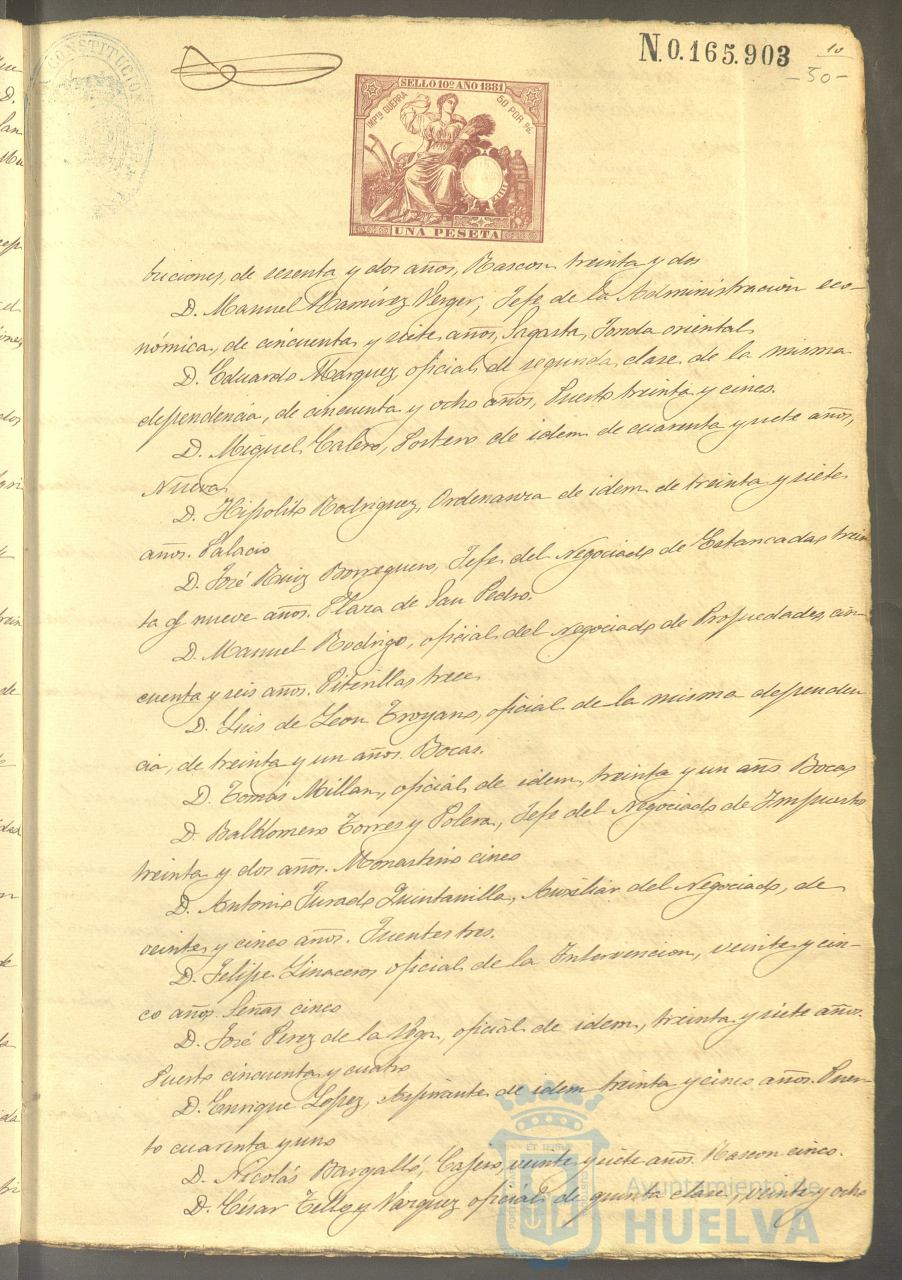 N 0.165.903
10
-50-
CONSTITUCION
SELLO 10º AÑO 1881
IMPTO GUERRA 50 POR %
UNA PESETA
buciones, de sesenta y dos años, Rascon treinta y dos
D. Manuel Ramirez Verger, Jefe de la Administración eco-
nómica, de cincuenta y siete años, Sagasta, Fonda oriental
D. Eduardo Marquez oficial de segunda clase de la misma
dependencia, de cincuenta y ocho años, Puerto treinta y cinco.
D. Miguel Calero, Portero de idem de cuarenta y siete años,
Nueva
D. Hipolito Rodriguez, Ordenanza de idem de treinta y siete
años. Palacio
D. José Ruiz Borreguero, Jefe del Negociado de Estancadas trein
ta y nueve años. Plaza de San Pedro.
D. Manuel Rodrigo, oficial del Negociado de Propiedades, cin-
cuenta y seis años. Piterillas trece
D. Luis de Leon Troyano, oficial de la misma dependen
cia, de treinta y un años. Bocas.
D. Tomás Millan, oficial de idem, treinta y un año Bocas
D. Baldomero Torres y Polera, Jefe del Negociado de Impuesto
treinta y dos años. Monasterio cinco
D. Antonio Jurado Quintanilla, Auxiliar del Negociado, de
veinte y cinco años. Fuentes tres.
D. Felipe Linaceros oficial de la Intervencion, veinte y cin-
co años. Señas cinco
D. José Perez de la Vega, oficial de idem, treinta y siete años.
Puerto cincuenta y cuatro
D. Enrique Lopez, Aspirante de idem treinta y cinco años. Puer-
to cuarenta y uno
D. Nicolás Bargalló, Cajero, veinte y siete años. Rascon cinco.
D. César Tello y Vazquez oficial de quinta clase, veinte y ocho
Ayuntamiento de
HUELVA